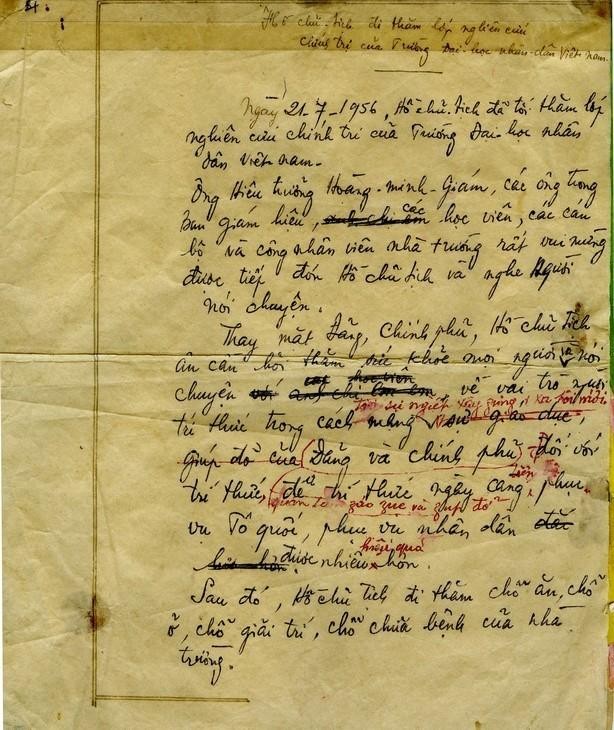 Hồ chủ-tịch đi thăm lớp nghiên cứu
chính trị của Trường Đại-học nhân-dân Việt-nam.
Ngày 21-7-1956, Hồ chủ tịch đã tới thăm lớp
nghiên cứu chính trị của Trường Đại-học nhân
dân Việt-nam.
Ông Hiệu trưởng Hoàng-minh-Giám, các ông trong
ban giám hiệu, anh chị em các học viên, các cán
bộ và công nhân viên nhà trường rất vui mừng
được tiếp đón Hồ chủ tịch và nghe Người
nói chuyện.
Thay mặt Đảng, Chính phủ, Hồ chủ tịch
ân cần hỏi thăm sức khỏe mọi người và nói
học viên
chuyện với anh chị em về vai trò người
sự nghiệp xây dựng xã hội mới
trí thức trong cách mạng, sự giáo dục,
giúp đỡ của Đảng và chính phủ đối với
trí thức, để trí thức ngày càng tiến, phục
quan tâm giáo dục và giúp đỡ
vụ Tổ quốc, phục vụ nhân dân
hiệu quả
được nhiều hơn.
Sau đó, Hồ chủ tịch đi thăm chỗ ăn, chỗ
ở, chỗ giải trí, chỗ chữa bệnh của nhà
trường.